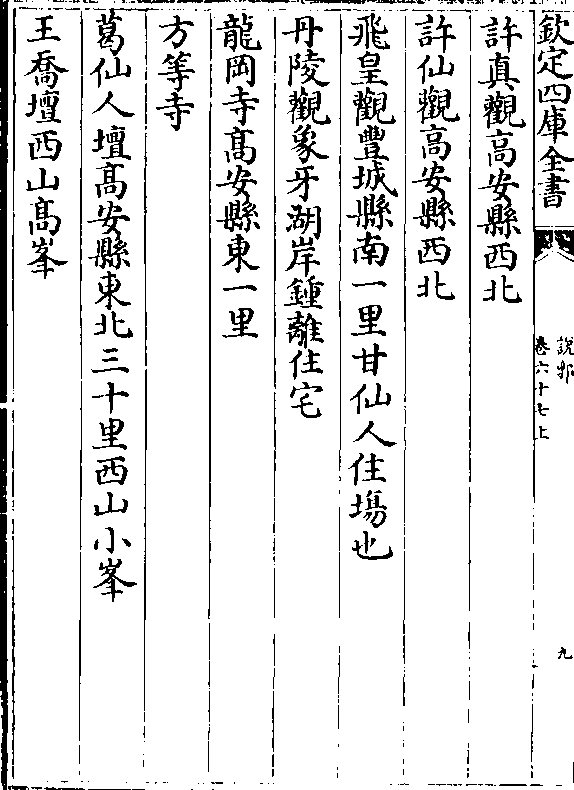 欽定四庫全書
說郛
卷六十七上
九
許真觀高安縣西北
許仙觀高安縣西北
飛皇觀豐城縣南一里甘仙人住塲也
丹陵觀象牙湖岸鍾離住宅
龍岡寺髙安縣東一里
方等寺
葛仙人壇髙安縣東北三十里西山小峯
王喬壇西山髙峯